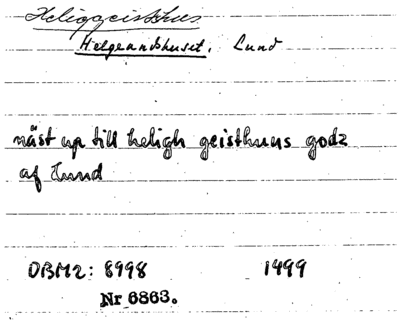 Heliggeisthus
Helgeandshuset, Lund
näst up till heligh geisthuus godz
af Lund
DBM2: 8998 1499
Nr 6863.